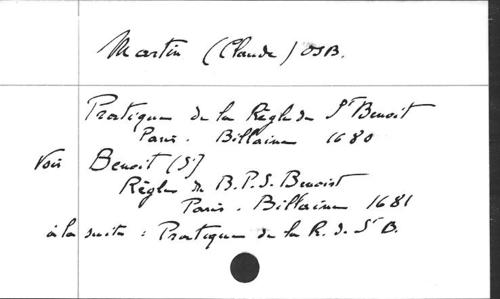 Martin (Claude) OSB.
Pratique de la Règle de St Benoit
Paris. Billaine 1680
Voir Benoit (St)
Règle du B.P.S. Benoist
Paris. Billaine 1681
à la suite : Pratique de la R. de St B.